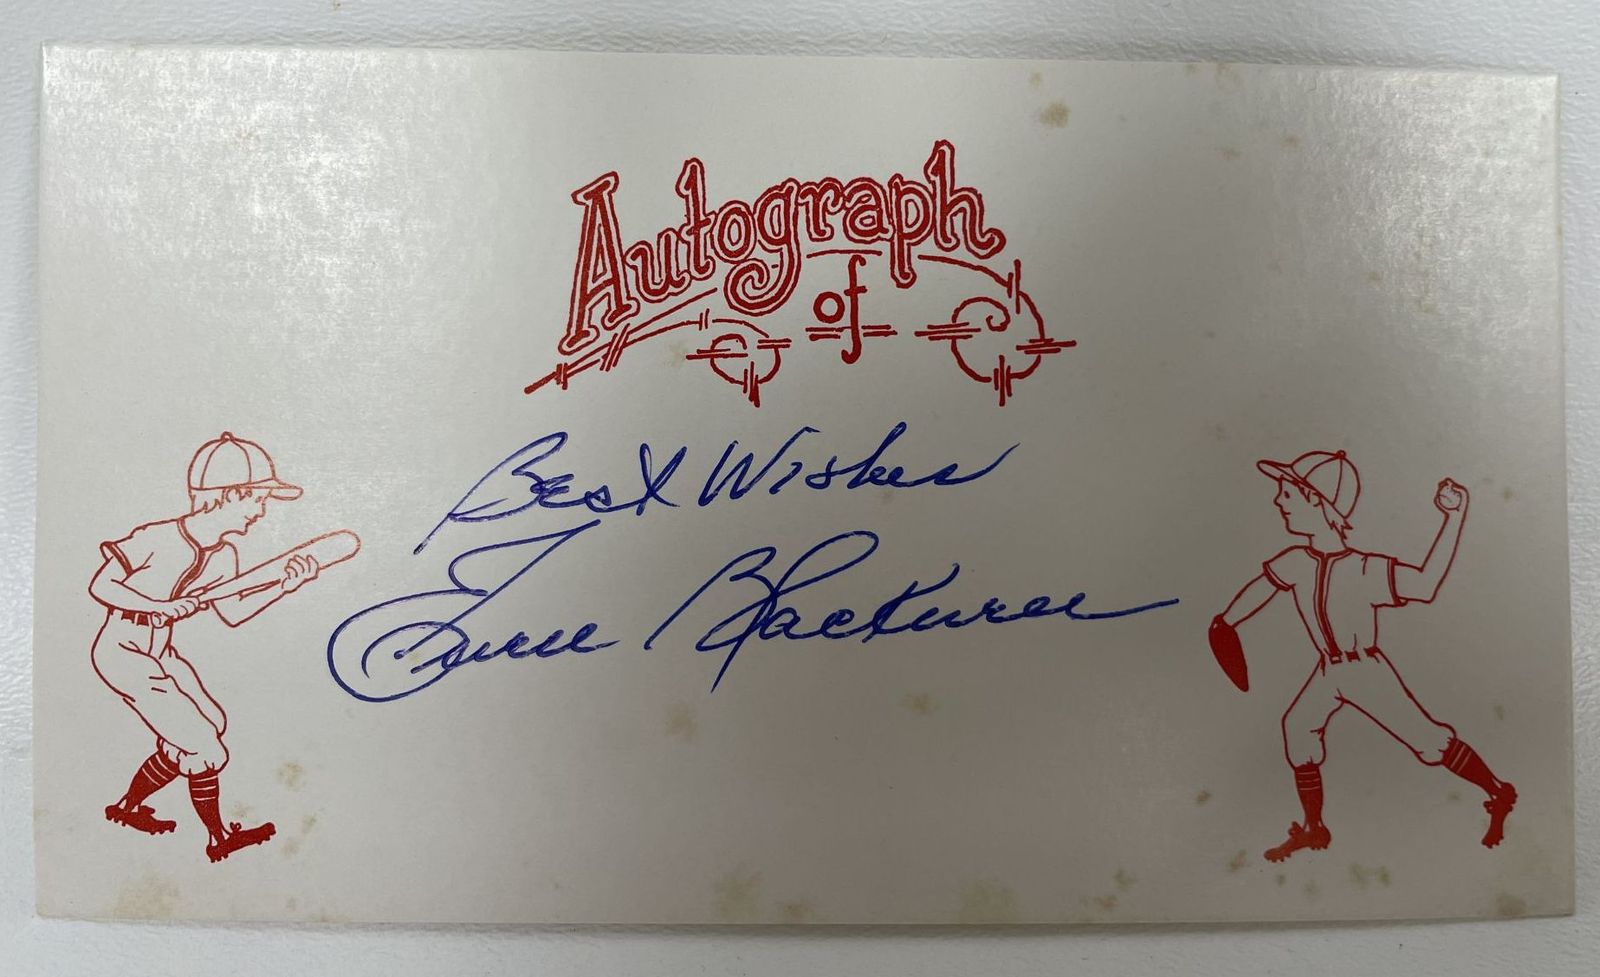 Autograph
of
Best Wishes
Ewell Blackwell